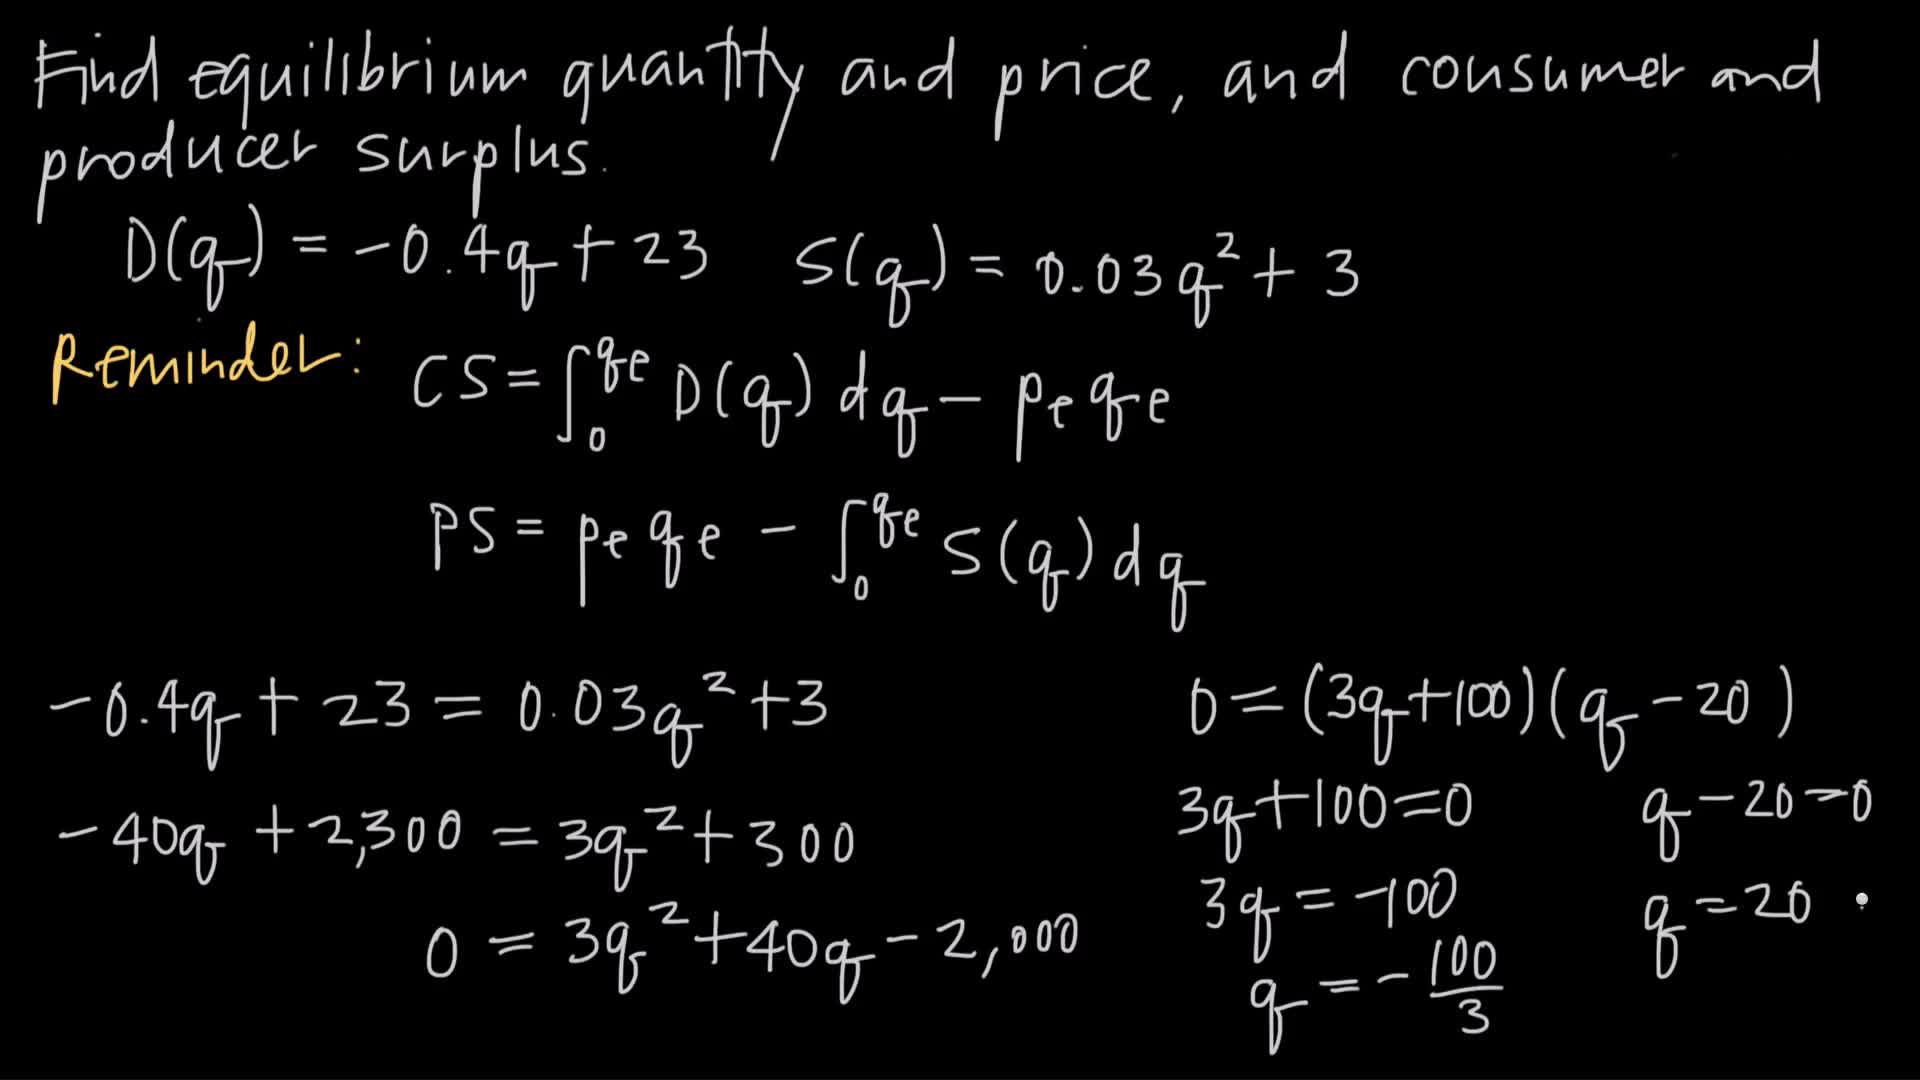 Find equilibrium quantity and price, and consumer and
producer surplus.
D(q) = -0.4q + 23    S(q) = 0.03q² + 3
Reminder: CS = ∫₀^qe D(q) dq - pe qe
PS = pe qe - ∫₀^qe S(q) dq
-0.4q + 23 = 0.03q² + 3
-40q + 2,300 = 3q² + 300
0 = 3q² + 40q - 2,000
0 = (3q + 100)(q - 20)
3q + 100 = 0    q - 20 = 0
3q = -100    q = 20
q = -100/3